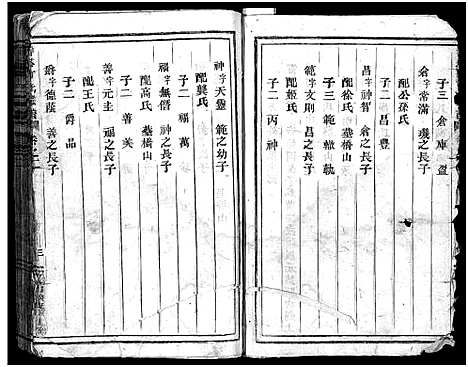 子三 倉 庫 盈
倉字常滿 瓊之長子
配公孫氏
子二 昌 豊
昌字神智 倉之長子
配徐氏 墓橋山
子三 範 轍 軌
範字文則 昌之長子
配姬氏
子二 丙 神
神字天靈 範之幼子
配龔氏
子二 福 萬
福字無僭 神之長子
配高氏 墓橋山
子二 善 美
善字元圭 福之長子
配王氏
子二 爵 品
爵字德蔭 善之長子